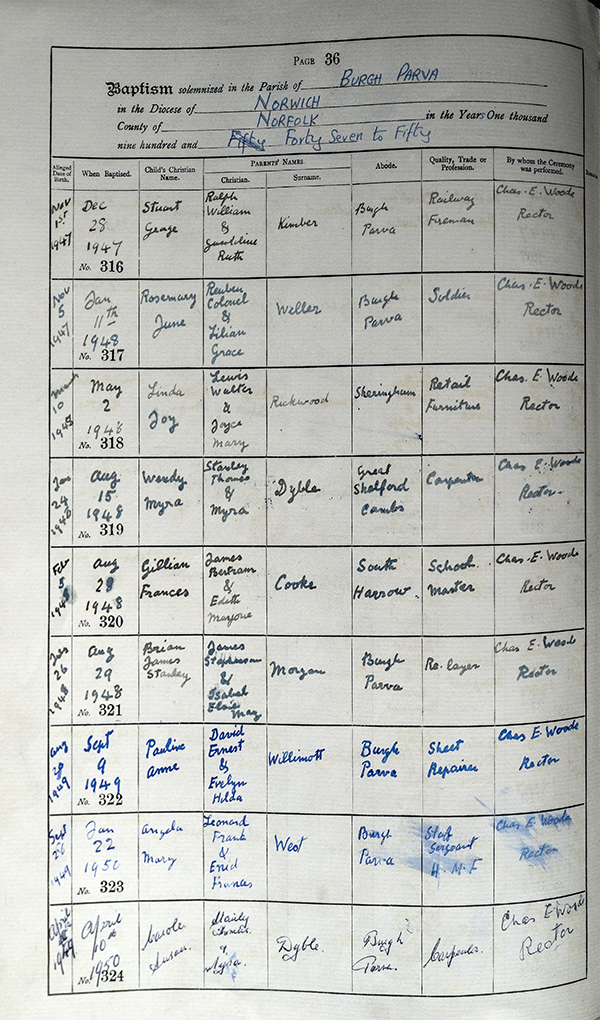 PAGE 36
Baptism solemnized in the Parish of BURGH PARVA
in the Diocese of NORWICH
County of NORFOLK in the Years One thousand
nine hundred and Fifty Forty Seven to Fifty
Alleged Date of Birth.
When Baptised.
Child's Christian Name.
PARENTS' NAMES.
Christian.
Surname.
Abode.
Quality, Trade or Profession.
By whom the Ceremony was performed.
Nov 1st 1947
Dec 28 1947
No. 316
Stuart George
Ralph William & Geraldine Ruth
Kimber
Burgh Parva
Railway Fireman
Chas. E. Woods Rector
Nov 5 1947
Jan 11th 1948
No. 317
Rosemary June
Reuben Colonel & Lilian Grace
Weller
Burgh Parva
Soldier
Chas. E. Woods Rector
March 10 1948
May 2 1948
No. 318
Linda Joy
Lewis Walter & Joyce Mary
Rickwood
Sheringham
Retail Furniture
Chas. E. Woods Rector
24 1948
Aug 15 1948
No. 319
Wendy Myra
Stanley Thomas & Myra
Dyble
Great Shelford Cambs
Carpenter
Chas E. Woods Rector
Feb 5 1948
Aug 28 1948
No. 320
Gillian Frances
James Bertram & Edith Marjorie
Cooke
South Harrow
School Master
Chas. E. Woods Rector
26 1948
Aug 29 1948
No. 321
Brian James Stanley
James Stephenson & Isabel Elsie May
Morgan
Burgh Parva
Re-layer
Chas E. Woods Rector
Aug 1949
Sept 9 1949
No. 322
Pauline Anne
David Ernest & Evelyn Hilda
Willimott
Burgh Parva
Sheet Repairer
Chas E. Woods Rector
Sept 26 1949
Jan 22 1950
No. 323
Angela Mary
Leonard Frank & Enid Frances
West
Burgh Parva
Staff Sergeant H.M.F
Chas E. Woods Rector
April 1949
April 10th 1950
No. 324
Carole Susan
& Myra
Dyble.
Burgh Parva.
Carpenter.
Chas E Woods Rector